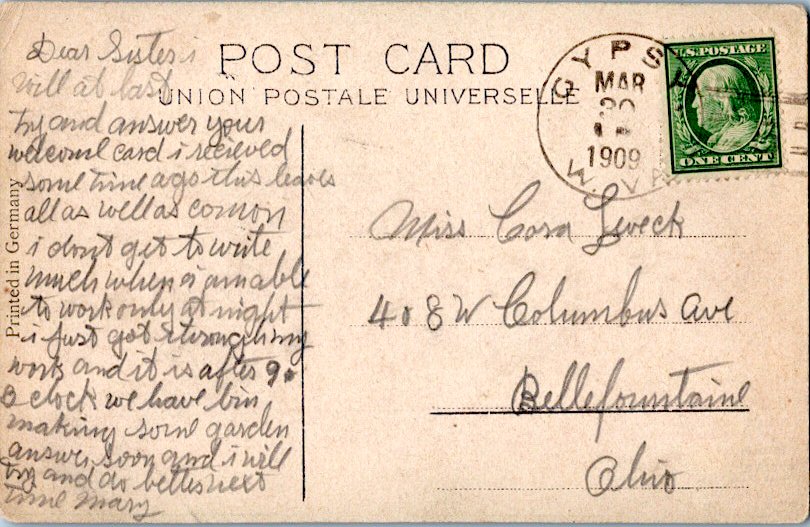 POST CARD
UNION POSTALE UNIVERSELLE
Printed in Germany
GYPSY
MAR
30
1909
W. VA
U.S. POSTAGE
ONE CENT
Dear Sister i
will at last
try and answer your
welcome card i recieved
some time ago this leaves
all as well as comon
i dont get to write
much when i am able
to work only at night
i just got through my
work and it is after 9.
O clock we have bin
making some garden
answer soon and i will
try and do better next
time Mary
Miss Cora
408 W Columbus Ave
Bellefountaine
Ohio